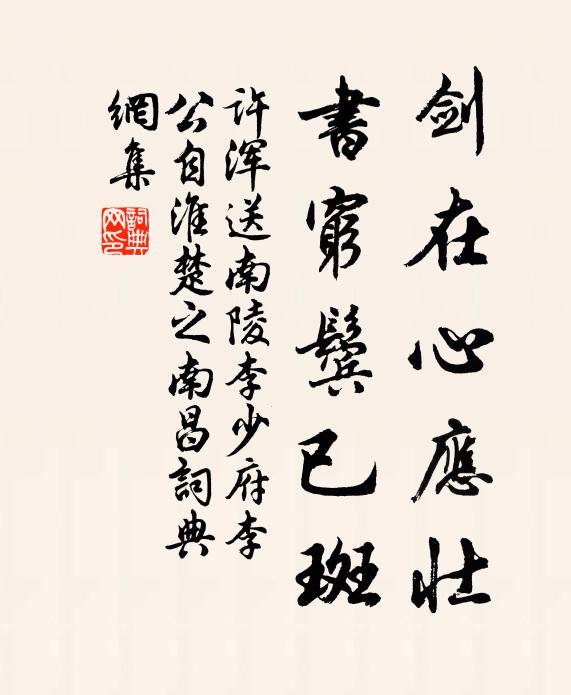 剑在心應壮
書窮鬓已斑
许浑送南陵李少府李
公自淮楚之南昌詞典
網集
詞典网印